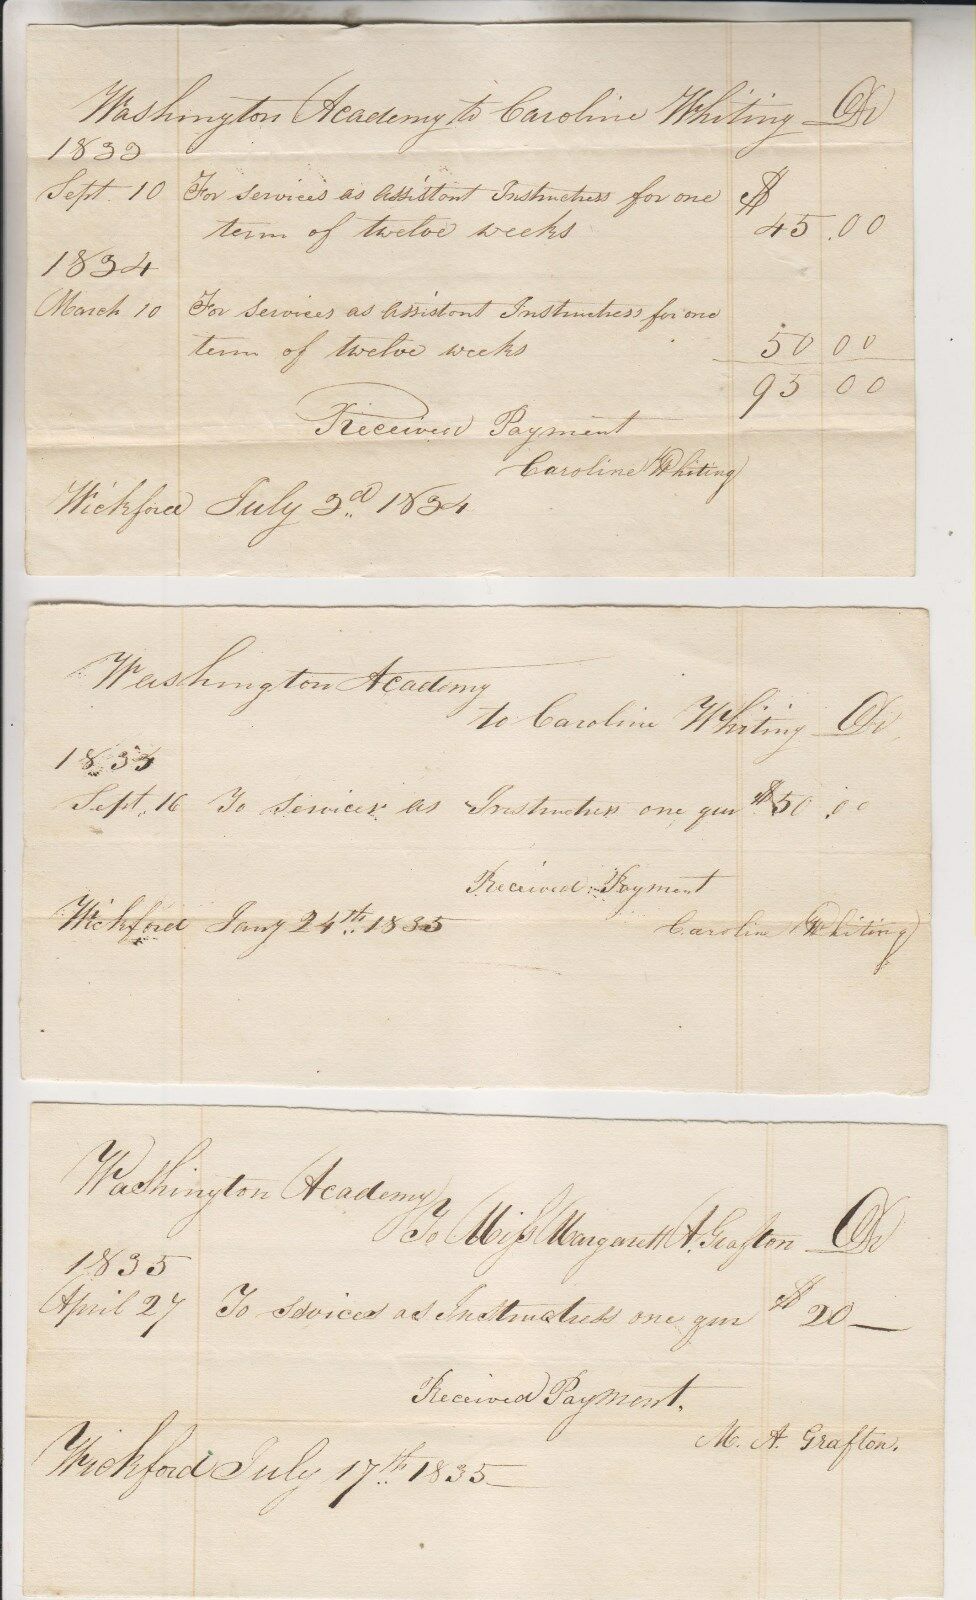 Washington Academy to Caroline Whiting Dr
1833
Sept. 10 For services as assistant Instructress for one $
term of twelve weeks 45.00
1834
March 10 For services as assistant Instructress for one
term of twelve weeks 50 00
95 00
Received Payment
Caroline Whiting
Wickford July 3d 1834
Washington Academy
to Caroline Whiting Dr
1834
Sept. 16 To services as Instructress one qur $50.00
Received Payment
Wickford Jany 24th 1835 Caroline Whiting
Washington Academy
To Miss Margarett A. Grafton Dr
1835
April 27 To services as Instructress one qur $ 20—
Received Payment.
M. A. Grafton.
Wickford July 17th 1835